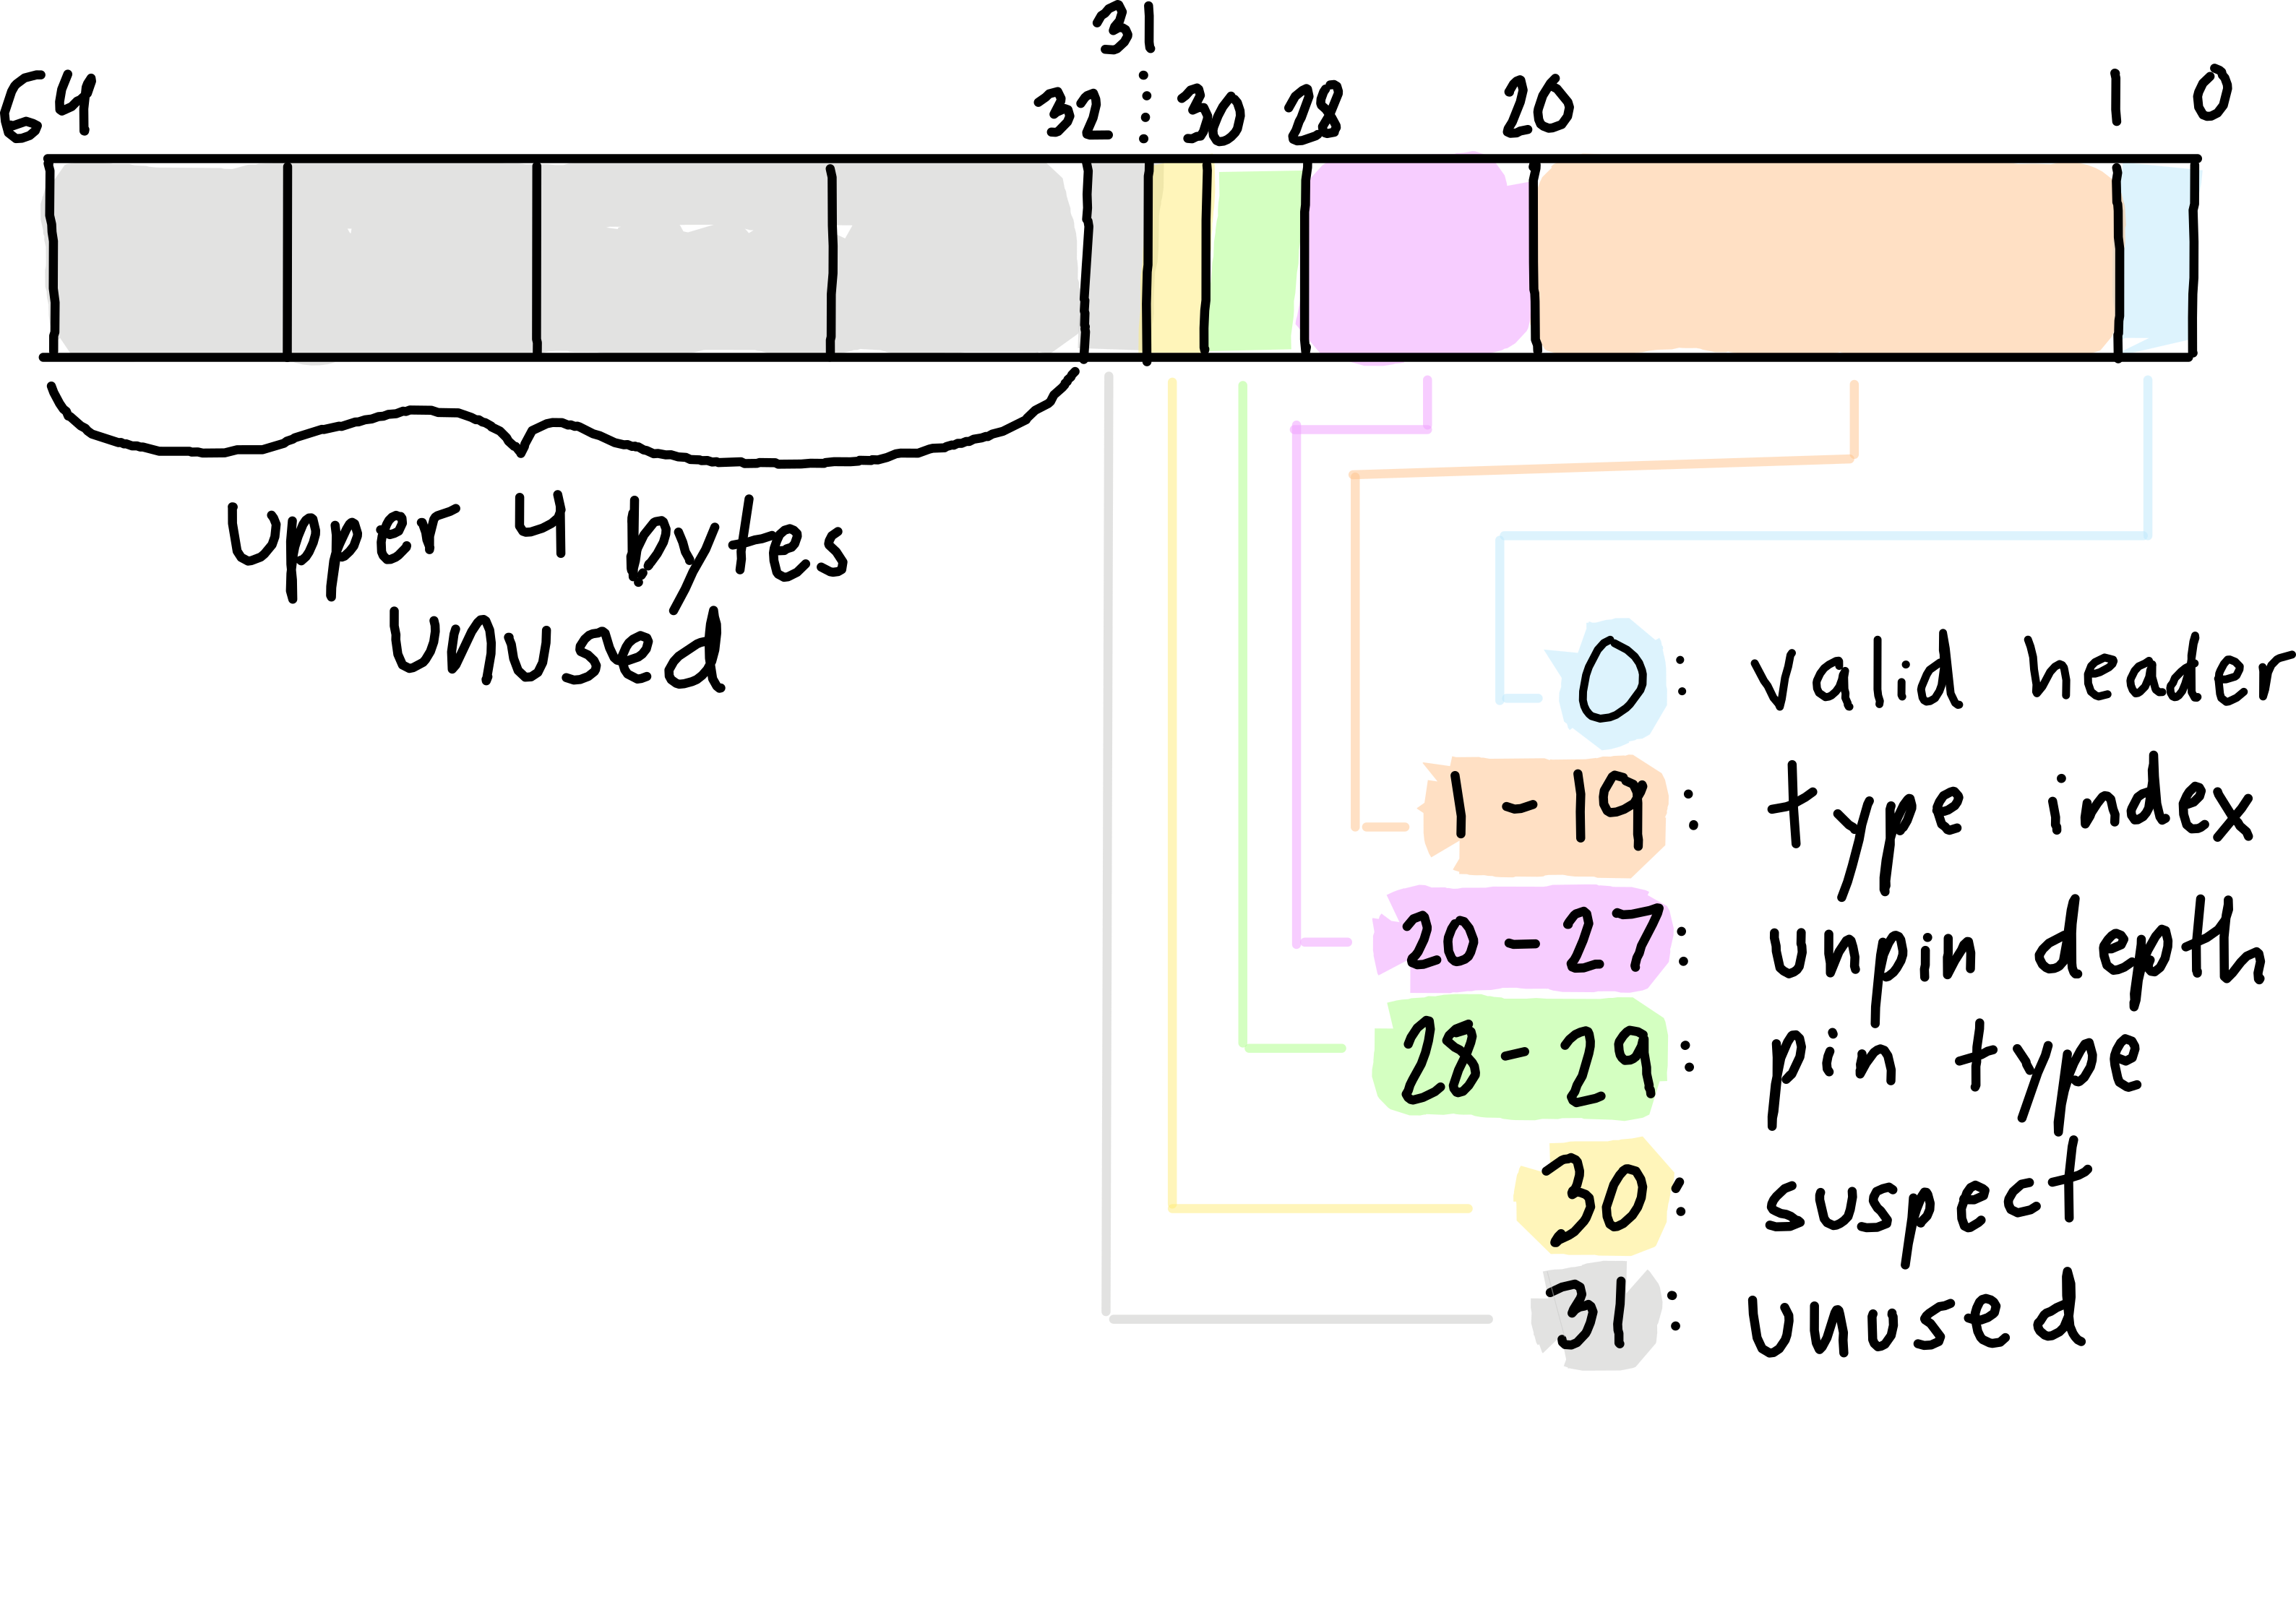 31
64 32 30 28 20 1 0
upper 4 bytes
unused
0: valid header
1-19: type index
20-27: unpin depth
28-29: pin type
30: suspect
31: unused